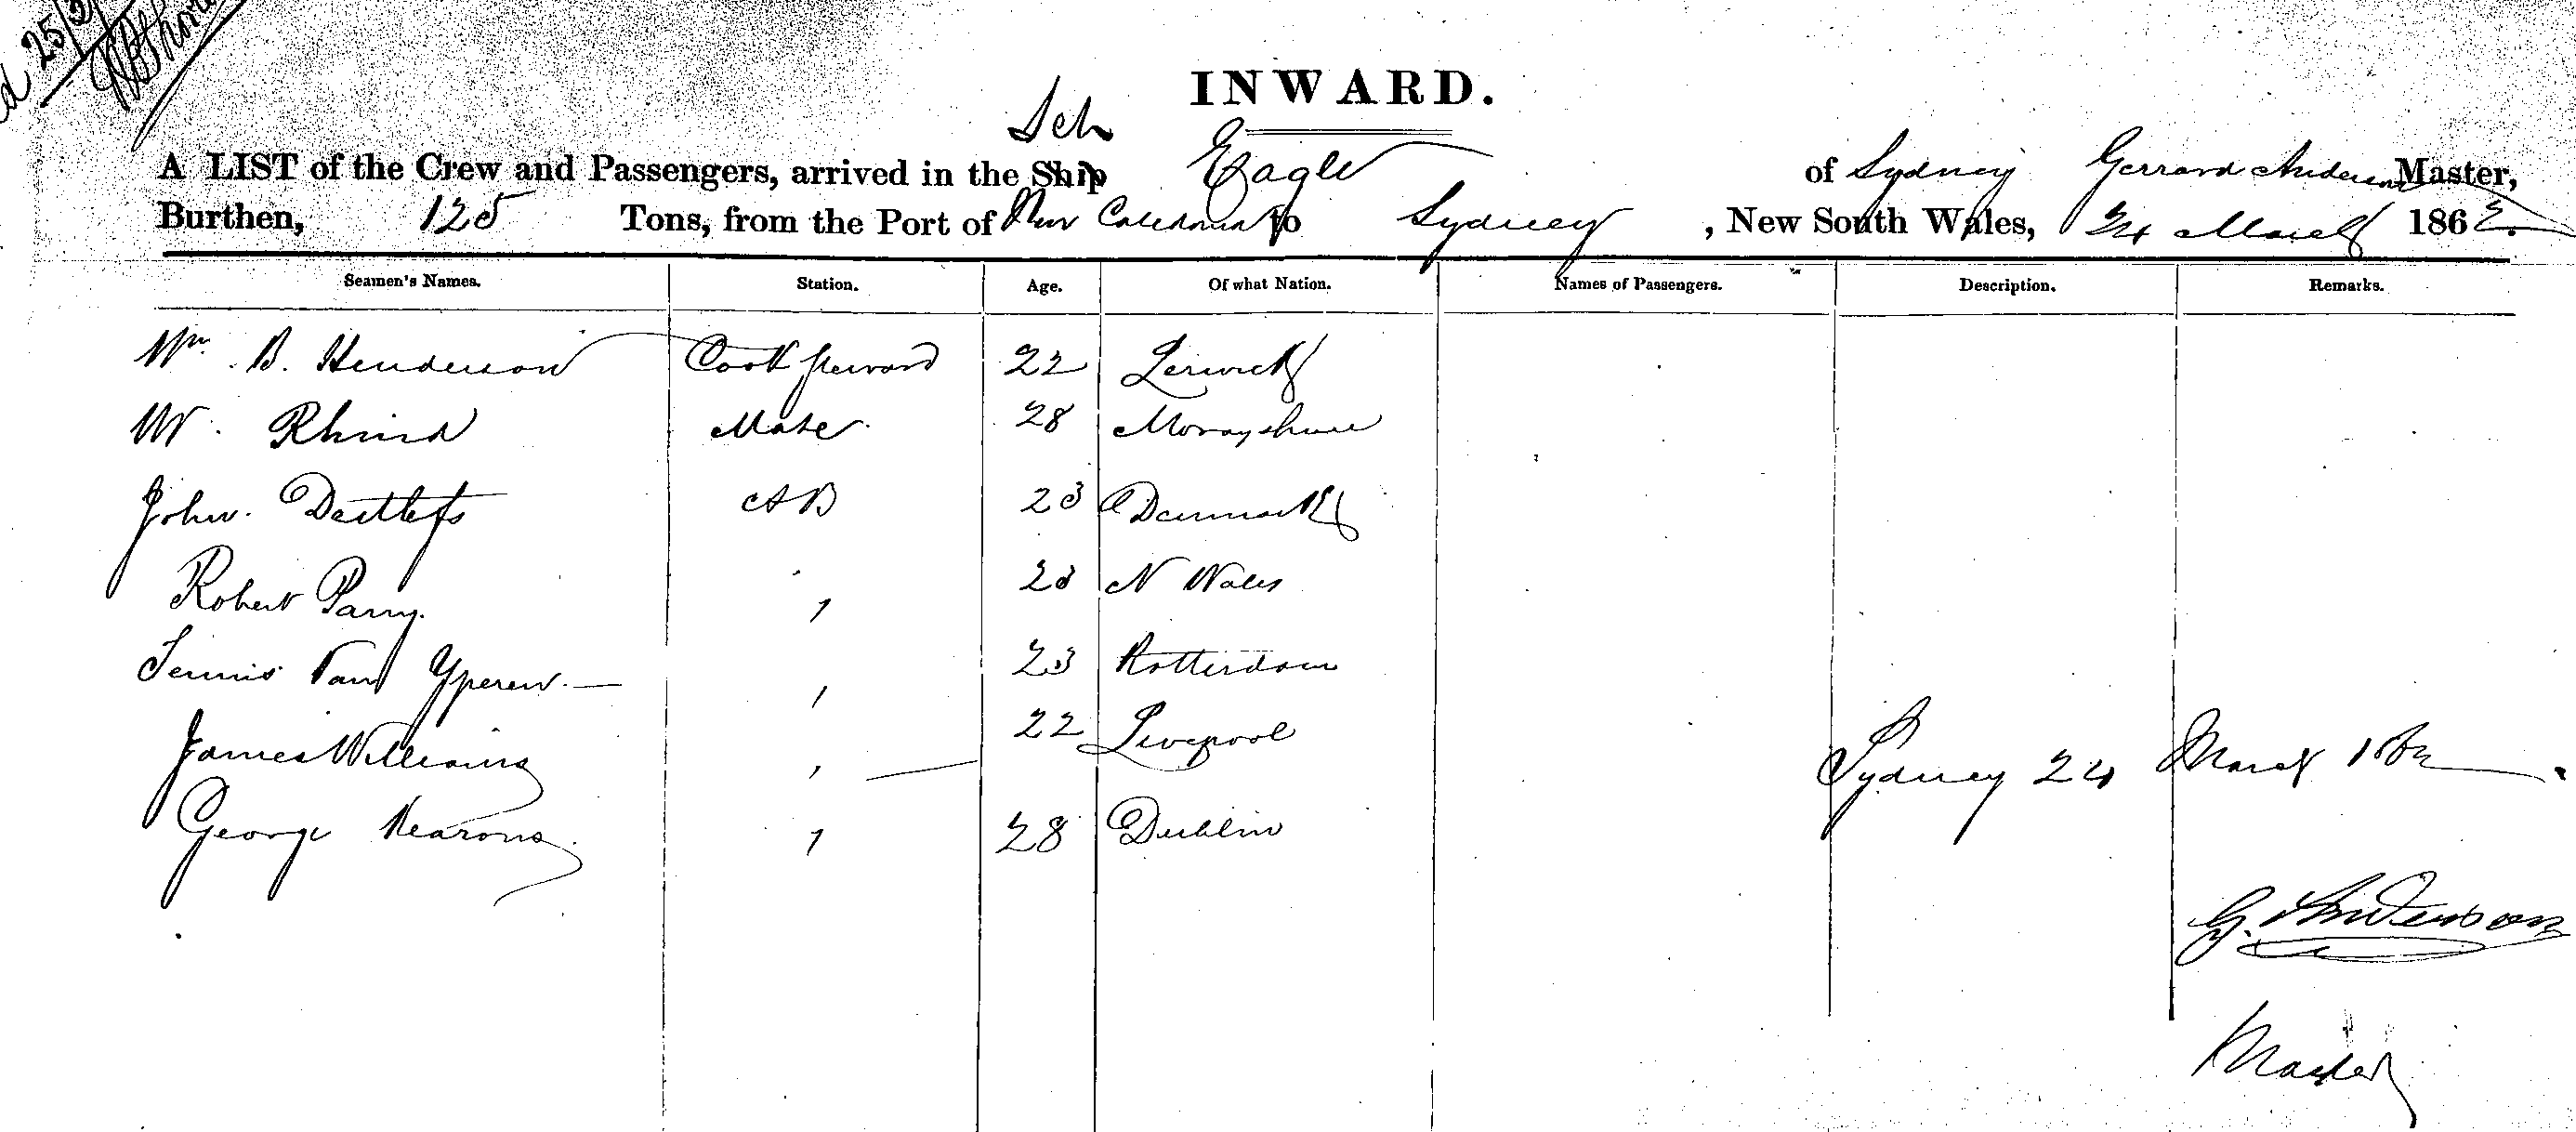 25/3
INWARD.
Sch
A LIST of the Crew and Passengers, arrived in the Ship Eagle of Sydney Gerrard Anderson Master,
Burthen, 125 Tons, from the Port of New Caledonia to Sydney, New South Wales, 24 March 1862.
Seamen's Names. Station. Age. Of what Nation. Names of Passengers. Description. Remarks.
Wm. B. Henderson Cook Steward 22 Lerwick
W. Rhind Mate 28 Morayshire
John Deitlefs AB 23 Denmark
Robert Parry. " 23 N Wales
Teunis Van Yperen — " 23 Rotterdam
James Williams " 22 Liverpool
Sydney 24 March 1862.
George Kearons " 28 Dublin
G. Anderson
Master